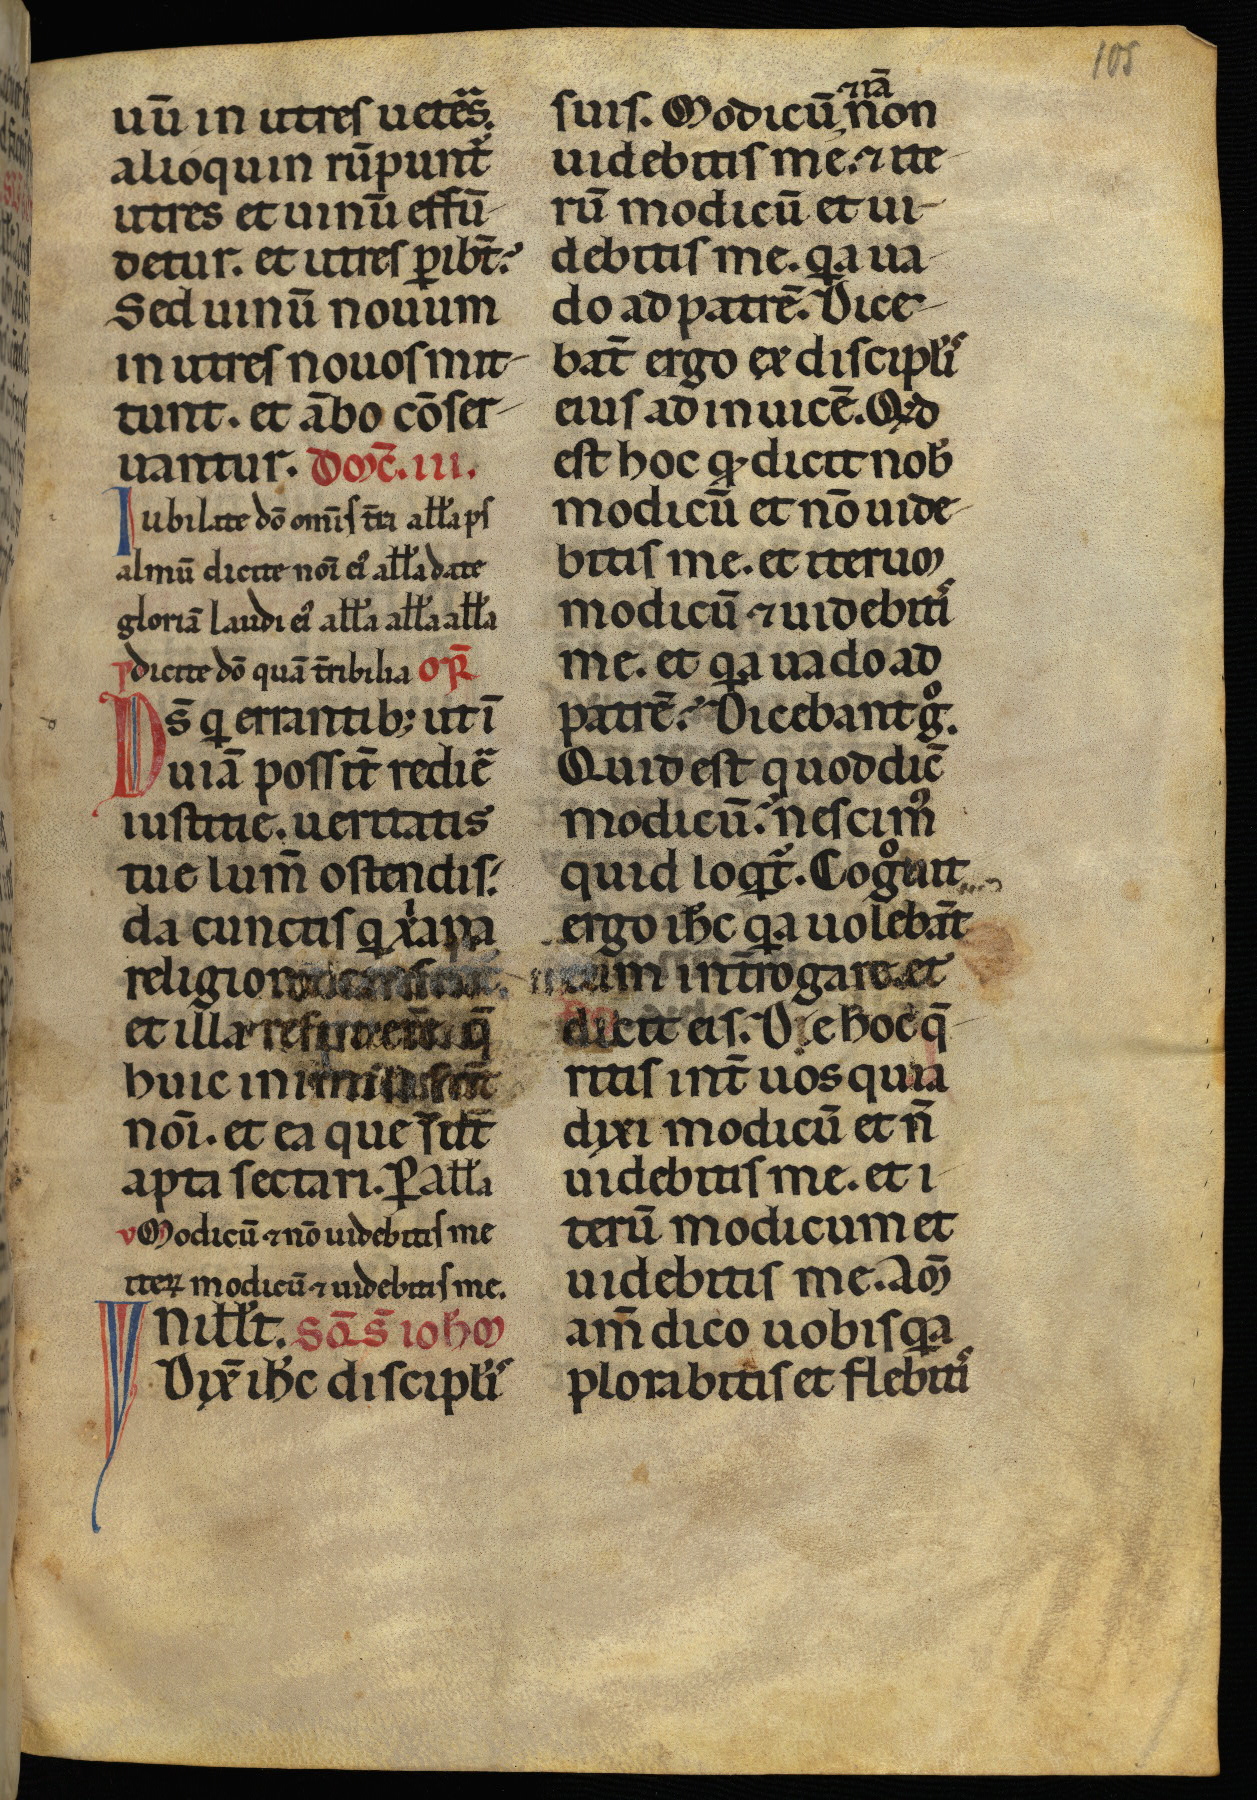 105
uū in utres uetēs.
alioquin rūpunt᷑
utres et uinū effū-
detur. et utres ꝑibt̄.
Sed uinū nouum
in utres nouos mit-
tunt. et ābo cōser-
uantur. Dom̄c. III.
Iubilate dō om̄is t̄ra all'a ps
almū dicite nōi ei' all'a date
gloriā laudi ei' all'a all'a all'a
p dicite dō quā t̄ribilia or̄
Ds̄ q errantib; ut ī
uiā possīt rediē
iustitie. ueritatis
tue lum̄ ostendis.
da cunctis q xp̄iana
religio
et illa respuere q̄
huic inimica sūt
nōi. et ea que sūt
apta sectari. P all'a
v Modicū ⁊ nō uidebitis me
iteꝝ modicū ⁊ uidebitis me.
IN ill't. Sc̄d̄s ioh̄m
Dix̄ ih̄c discipl'is
suis. Modicū ⁊ iā non
uidebitis me. ⁊ ite-
rū modicū et ui-
debitis me. qa ua-
do ad patrē. Dice-
bāt ergo ex discipl'is
eius ad inuicē. Qid
est hoc qd dicit nob'
modicū et nō uide-
bitis me. et iterum
modicū ⁊ uidebitis
me. et qa uado ad
patrē. Dicebant gͦ.
Quid est quod dic̄
modicū. nescim᷒
quid loqt᷑. Cogͦuit
ergo ih̄c qa uolebāt
eum int̄rogare. et
dicit eis. De hoc q̄-
ritis int̄ uos quia
dixi modicū et n̄
uidebitis me. et i-
terū modicum et
uidebitis me. Am̄
am̄ dico uobis qa
plorabitis et flebitis